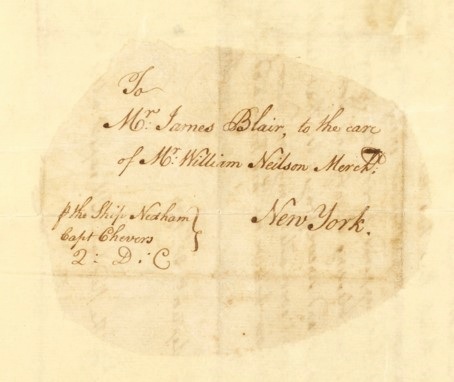 To
Mr. James Blair, to the care
of Mr. William Neilson Mercht.
New York.
p the Ship Needham
Capt Chevers
2: D: C